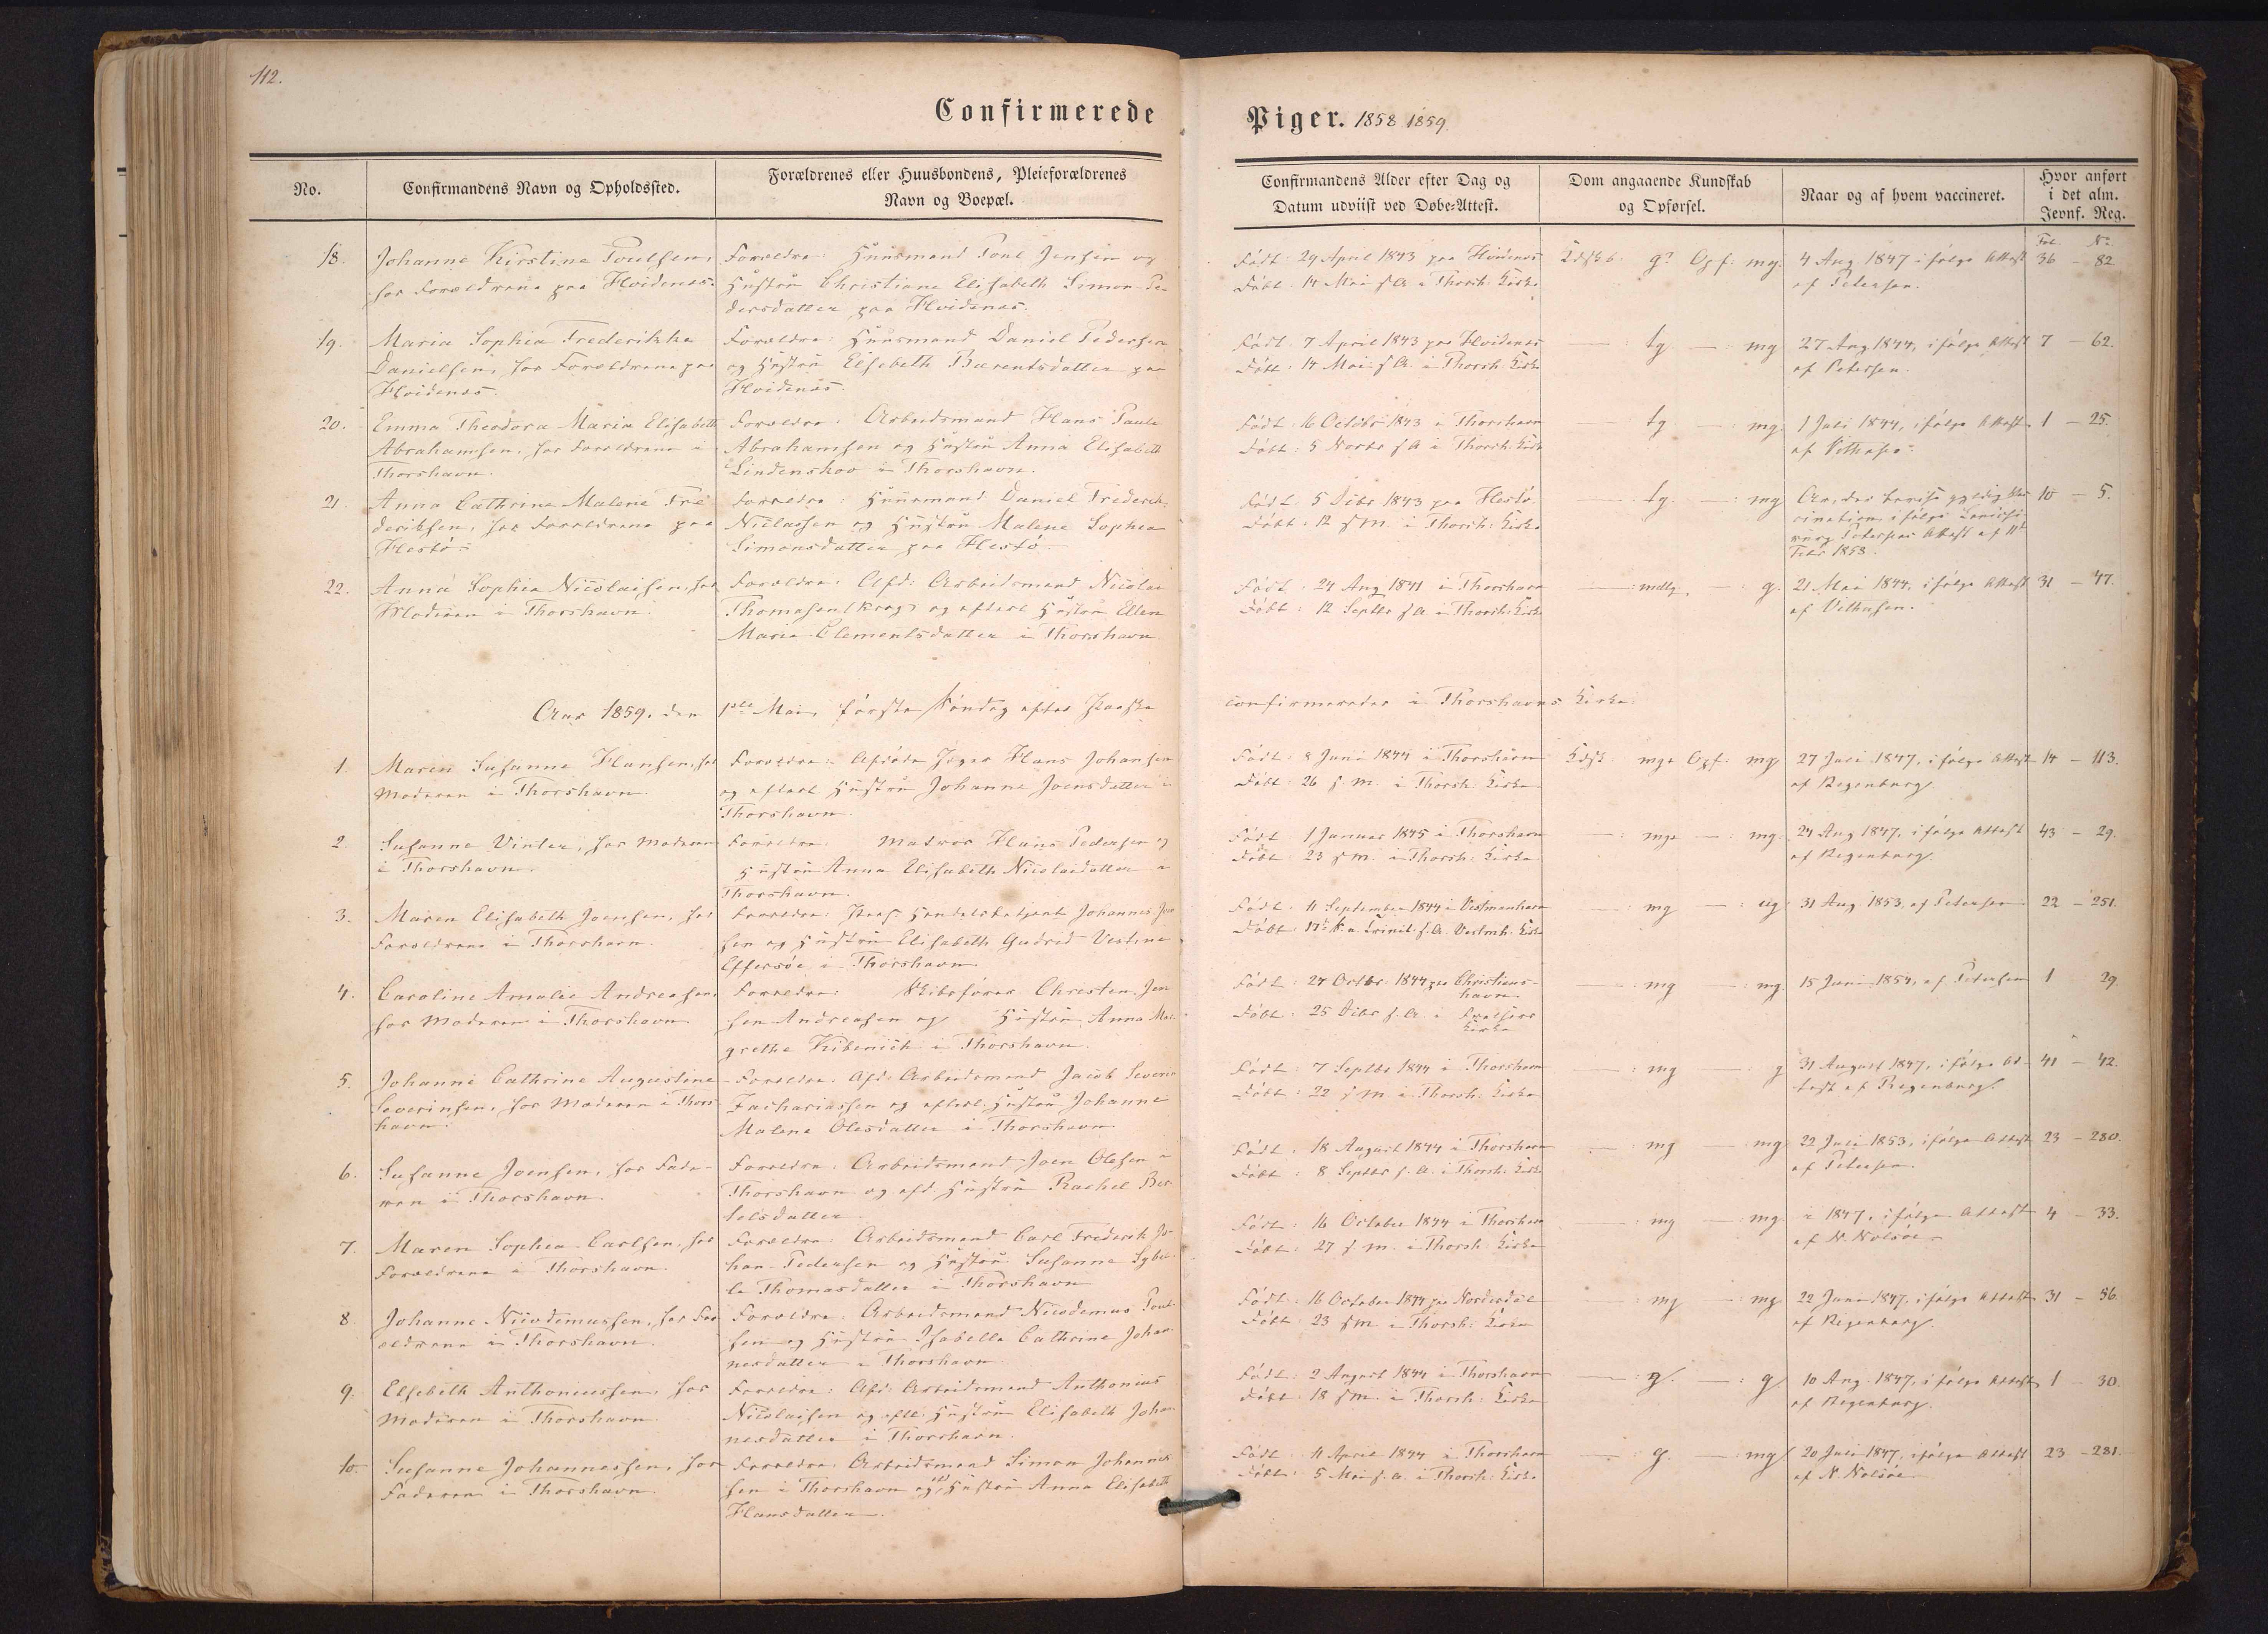 112.
Confirmerede
Piger. 1858 1859.
No.
Confirmandens Navn og Opholdssted.
Forældrenes eller Huusbondens, Pleieforældrenes
Navn og Boepæl.
Confirmandens Alder efter Dag og
Datum udviist ved Døbe-Attest.
Dom angaaende Kundskab
og Opførsel.
Naar og af hvem vaccineret.
Hvor anført
i det alm.
Jevnf. Reg.
Fol. No
18. Johanne Kirstine Poulsen,
hos Forældrene paa Hvidenæs.
Forældre: Huusmand Poul Jensen og
Hustru Christiane Elisabeth Simon Pe-
dersdatter paa Hvidenæs.
Født: 29 April 1843 paa Hvidenæs
Døbt: 14 Mai s. A. i Thorsh: Kirke
Kdskb. g? Opf: mg.
4 Aug 1847 ifølge Attest
af Petersen.
36 - 82
19. Maria Sophia Frederikke
Danielsen, hos Forældrene paa
Hvidenæs.
Forældre: Huusmand Daniel Pedersen
og Hustru Elsebeth Barentsdatter paa
Hvidenæs.
Født: 7 April 1843 paa Hvidenæs
Døbt: 14 Mai s A. i Thorsh: Kirke
— tg. — : mg
27 Aug 1844, ifølge Attest
af Petersen.
7 - 62.
20. Emma Theodora Maria Elisabeth
Abrahamsen, hos Forældrene i
Thorshavn.
Forældre: Arbeidsmand Hans Paule
Abrahamsen og Hustru Anna Elisabeth
Lindenskov i Thorshavn.
Født: 16 Octobr 1843 i Thorshavn
Døbt: 5 Novbr s A i Thorsh: Kirke
— tg — : mg.
1 Juli 1844, ifølge Attest
af
1 - 25.
21. Anna Cathrine Malene Fre
deriksen, hos Forældrene paa
Hestø
Forældre: Huusmand Daniel Frederik
Niclassen og Hustru Malene Sophia
Simonsdatter paa Hestø.
Født: 5 Dcbr 1843 paa Hestø.
Døbt: 12 s M. i Thorsh: Kirke
— tg. — : mg
cination, ifølge
Petersens Attest af 11te
Febr 1858.
10 - 5.
22. Anna Sophia Nicolaisen, hos
Moderen i Thorshavn.
Forældre: Afd: Arbeidsmand Nicolai
Thomasen (Krag) og efterl Hustru Ellen
Maria Clementsdatter i Thorshavn
Født: 24 Aug 1841 i Thorshavn
Døbt: 12 Septbr s A i Thorsh: Kirke
— : mdlg — : g.
21 Mai 1844, ifølge Attest
af
31 - 47.
Aar 1859. den 1ste Mai, første Søndag efter Paaske
confirmeredes i Thorshavns Kirke:
1. Maren Susanne Hansen, hos
Moderen i Thorshavn.
Forældre: Afdøde Jæger Hans Johansen
og efterl Hustru Johanne Joensdatter i
Thorshavn.
Født: 8 Juni 1844 i Thorshavn
Døbt: 26 s. M. i Thorsh: Kirke
Kdsk: mg+ Opf: mg
27 Juli 1847, ifølge Attest
af Regenburg.
14 - 113.
2. Susanne Vinter, hos Moderen
i Thorshavn.
Forældre: Matros Hans Pedersen og
Hustru Anna Elisabeth Nicolaidatter i
Thorshavn.
Født 1 Januar 1845 i Thorshavn
Døbt 23 s M. i Thorsh: Kirke
— : mg+ — : mg.
24 Aug 1847, ifølge Attest
af Regenburg.
43 - 29.
3. Maren Elisabeth Joensen, hos
Forældrene i Thorshavn.
Forældre: Handelsbetjent Johannes Joen
sen og Hustru Elisabeth Gudrid Vestine
Effersøe i Thorshavn.
Født: 11 September 1844 i Vestmanhavn
Døbt: 17de S. a. Trinit: s. A. Vestmh. Kirke
— : mg — : ug
31 Aug 1853, af Petersen
22 - 251.
4. Caroline Amalie Andreasen,
hos Moderen i Thorshavn
Forældre: Skibsfører Christen Jen
sen Andreasen og Hustru Anna Mar-
grethe Kibenich i Thorshavn.
Født: 24 Octbr. 1844 paa Christians-
havn.
Døbt: 25 Dcbr s. A. i Frelsers
Kirke
— : mg — : mg.
15 Juni 1854, af Petersen
1 29
5. Johanne Cathrine Augustine
Severinsen, hos Moderen i Thors
havn.
Forældre: Afd: Arbeidsmand Jacob Severin
Zachariassen og efterl. Hustru Johanne
Malene Olesdatter i Thorshavn
Født: 7 Septbr 1844 i Thorshavn
Døbt: 22 s M. i Thorsh: Kirke
— : mg — g
31 August 1847, ifølge At-
test af Regenburg.
41 - 42.
6. Susanne Joensen, hos Fade-
ren i Thorshavn.
Forældre: Arbeidsmand Joen Olesen i
Thorshavn og afd. Hustru Rachel Ber
telsdatter
Født: 18 August 1844 i Thorshavn
Døbt: 8 Septbr s. A. i Thorsh: Kirke
— : mg — : mg
22 Juli 1853, ifølge Attest
af Petersen.
23 - 280.
7. Maren Sophia Carlsen, hos
Forældrene i Thorshavn.
Forældre: Arbeidsmand Carl Frederik Jo-
han Pedersen og Hustru Susanne Sybil-
le Thomasdatter i Thorshavn
Født: 16 October 1844 i Thorshavn
Døbt: 27 s. M. i Thorsh: Kirke
— : mg — : mg.
i 1847, ifølge Attest
af N. Nolsøe
4 - 33.
8. Johanne Nicodemussen, hos For
ældrene i Thorshavn.
Forældre: Arbeidsmand Nicodemus Poul-
sen og Hustru Isabella Cathrine Johan-
nesdatter i Thorshavn
Født: 16 October 1844 paa Nordredal
Døbt: 23 s M. i Thorsh: Kirke
— : mg — : mg
22 Juni 1847, ifølge Attest
af Regenburg.
31 - 56.
9. Elsebeth Anthoniussen, hos
Moderen i Thorshavn.
Forældre: Afd: Arbeidsmand Anthonius
Nicolaisen og eftl. Hustru Elisabeth Johan-
nesdatter i Thorshavn.
Født: 2 August 1844 i Thorshavn
Døbt: 18 s M. i Thorsh: Kirke
— : g. — : g
10 Aug. 1847, ifølge Attest
af Regenburg.
1 - 30.
10. Susanne Johannessen, hos
Faderen i Thorshavn
Forældre: Arbeidsmand Simon Johannes-
sen i Thorshavn og Hustru Anna Elisabeth
Hansdatter.
Født: 11 April 1844 i Thorshavn
Døbt: 5 Mai s. A. i Thorsh: Kirke
— : g. — : mg
20 Juli 1847, ifølge Attest
af N. Nolsøe
23 - 281.